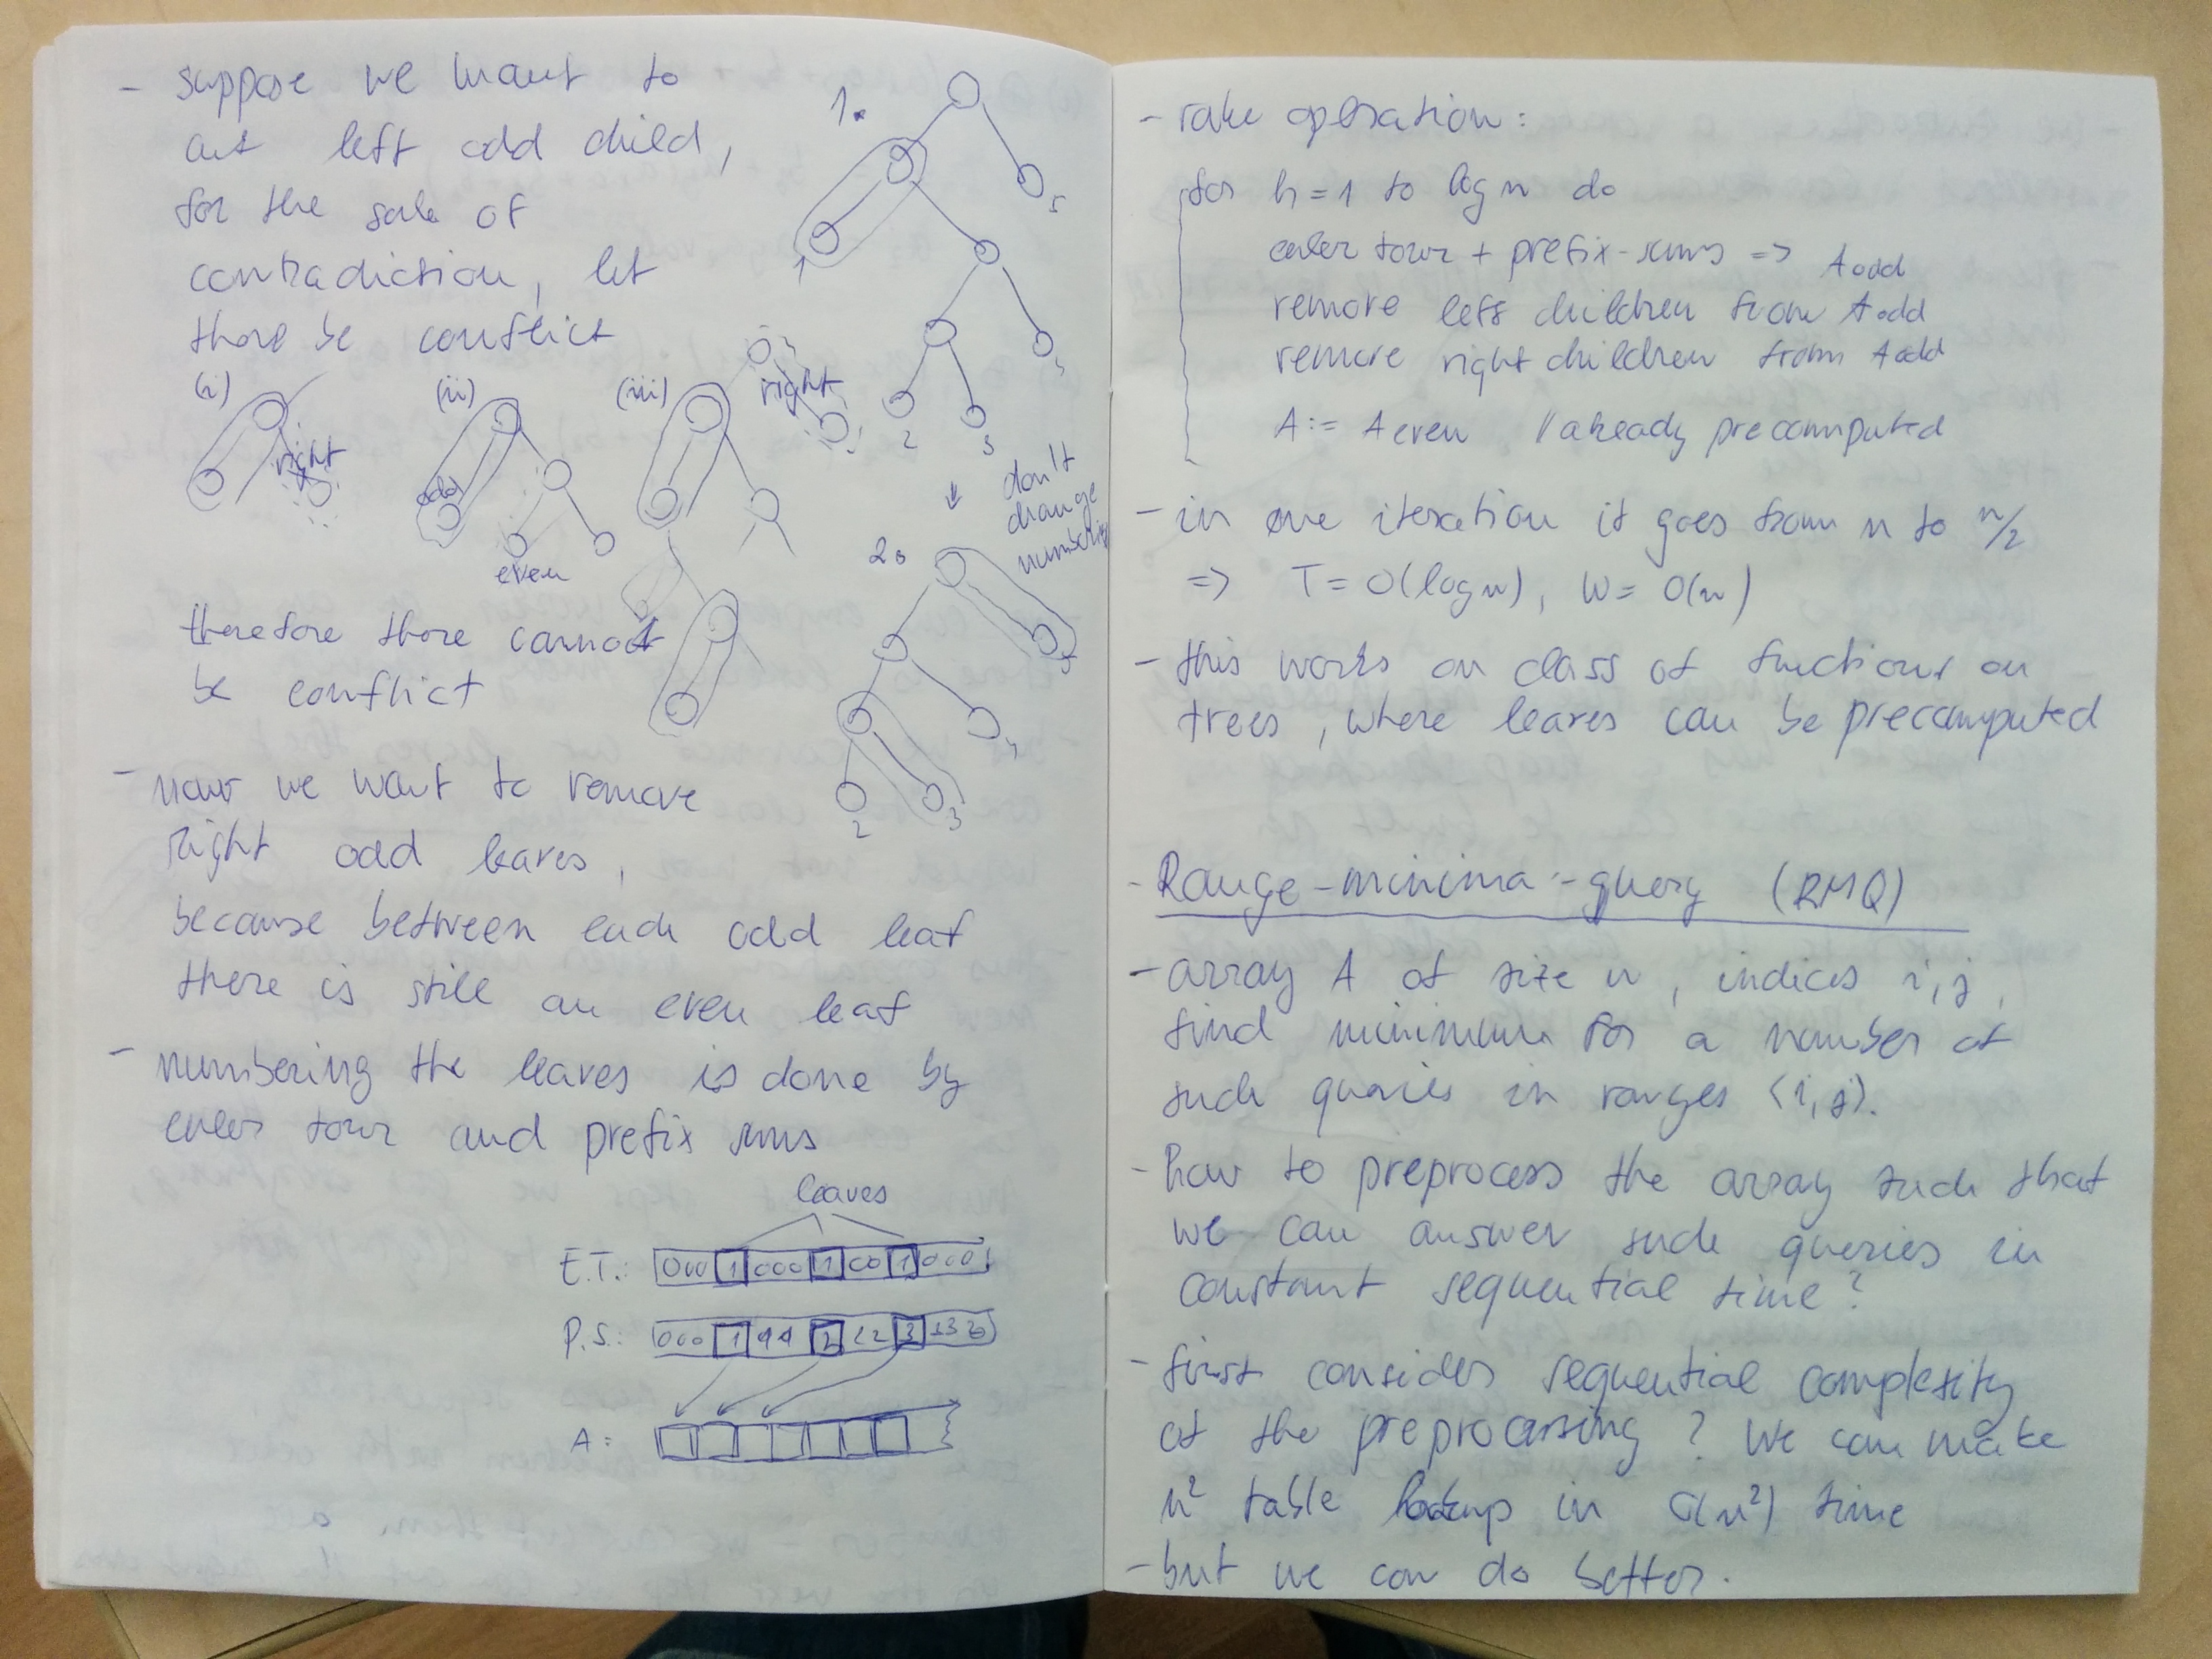 - suppose we want to
cut left odd child,
for the sake of
contradiction, let
there be conflict
(i) (ii) (iii)
right
odd
even
right
therefore there cannot
be conflict
- now we want to remove
right odd leaves,
because between each odd leaf
there is still an even leaf
- numbering the leaves is done by
euler tour and prefix sums
leaves
E.T.: 000 1 000 1 00 1 000
P.S.: 000 1 11 2 22 3 333
A:
1.
1
5
2
3
don't
change
numbering
2.
5
2
3
- rake operation:
for h=1 to log n do
euler tour + prefix-sums => A odd
remove left children from A odd
remove right children from A odd
A := A even // already precomputed
- in one iteration it goes from n to n/2
=> T = O(log n), W = O(n)
- this works on class of functions on
trees, where leaves can be precomputed
- Range-minima-query (RMQ)
- array A of size n, indices i, j,
find minimum for a number of
such queries in ranges <i, j>.
- how to preprocess the array such that
we can answer such queries in
constant sequential time?
- first consider sequential complexity
of the preprocessing? We can make
n² table lookup in O(n²) time
- but we can do better.